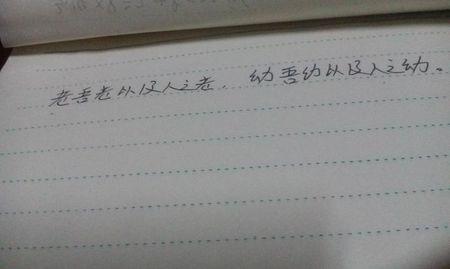 老吾老以及人之老. 幼吾幼以及人之幼。